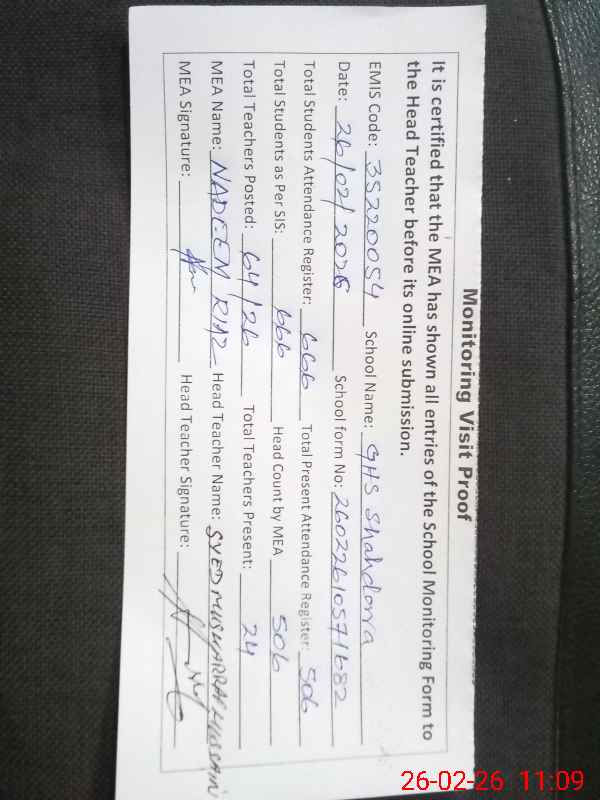 Monitoring Visit Proof
It is certified that the MEA has shown all entries of the School Monitoring Form to
the Head Teacher before its online submission.
EMIS Code: 35220054 School Name: GHS Shahdara
Date: 26/02/2026 School form No: 26022610571682
Total Students Attendance Register: 666 Total Present Attendance Register: 506
Total Students as Per SIS: 666 Head Count by MEA 506
Total Teachers Posted: 64/26 Total Teachers Present: 24
MEA Name: NADEEM RIAZ Head Teacher Name: SYED MUSHARRAF HUSSAIN
MEA Signature: Head Teacher Signature:
26-02-26 11:09